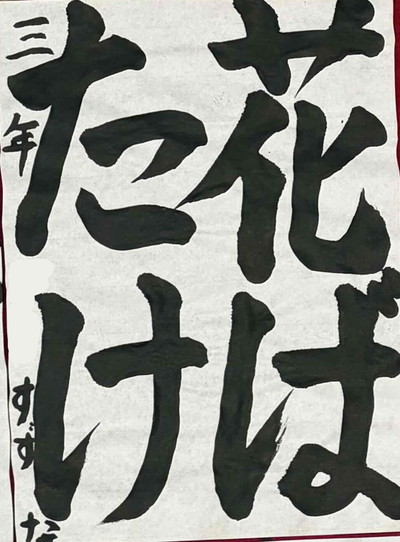 花ば
たけ
三年 すずな